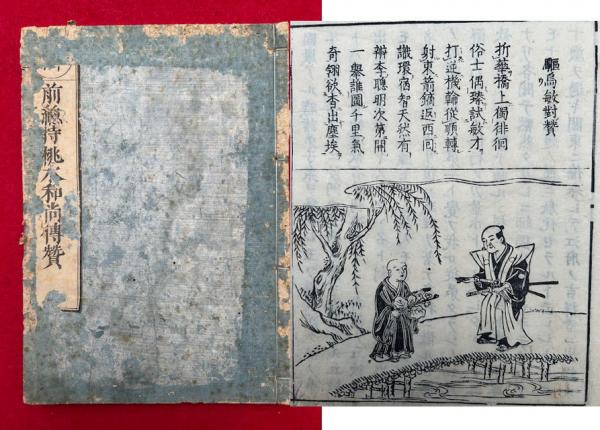 前總持桃水和尚傳贊
驅烏敏對贊
折華橋上獨徘徊
俗士偶臻試敏才
打逆機輪從頭轉
射東箭鏑返西回
識環宿智天然有
辨李聰明次第開
一舉誰圖千里氣
奇翎欲杳出塵埃